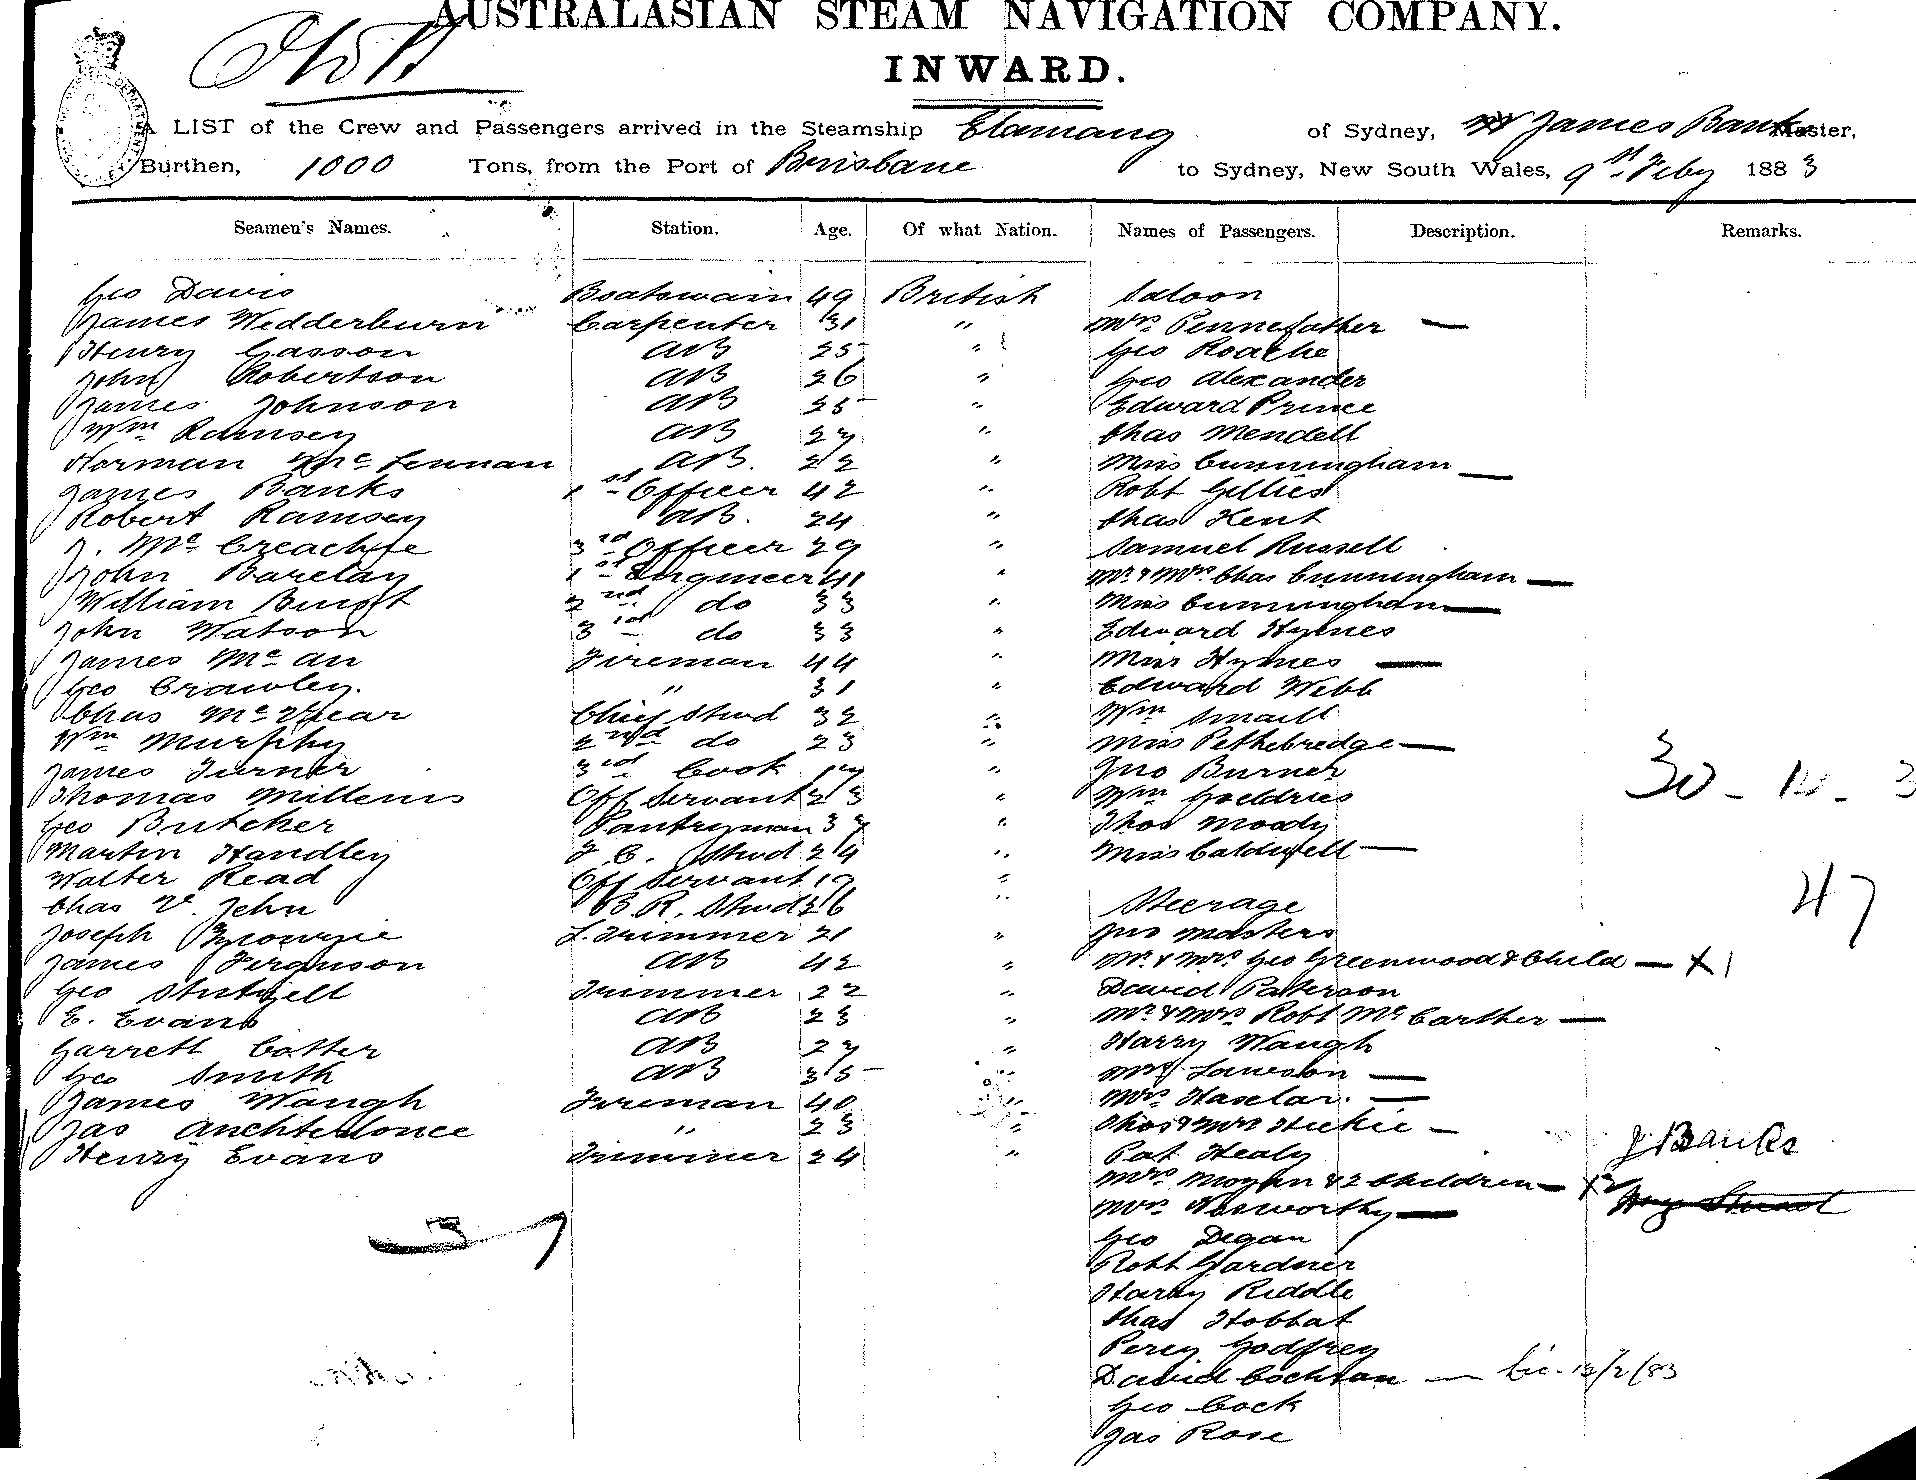 AUSTRALASIAN STEAM NAVIGATION COMPANY.
INWARD.
A LIST of the Crew and Passengers arrived in the Steamship Elamang of Sydney, James Banks Master,
Burthen, 1000 Tons, from the Port of Brisbane to Sydney, New South Wales, 9st Feby 1883
Seamen's Names. Station. Age. Of what Nation. Names of Passengers. Description. Remarks.
Geo Davis Boatswain 49 British Saloon
James Wedderburn Carpenter 31 " Mrs Pennefather —
Henry Gasson AB 25 " Geo Roache
John Robertson AB 26 " Geo Alexander
James Johnson AB 25 " Edward Prince
Wm Ramsey AB 27 " Chas Mendell
Norman McLennan AB. 22 " Miss Cunningham —
James Banks 1st Officer 42 " Robt Gillies
Robert Ramsey AB. 24 " Chas Kent
J. McCreachie 3rd Officer 29 " Samuel Russell
John Barclay 1st Engineer 41 " Mr & Mrs Chas Cunningham —
William Buist 2nd do 33 " Miss Cunningham —
John Watson 3rd do 33 " Edward Hymes
James Mc an Fireman 44 " Miss Hymes —
Geo Crawley. " 31 " Edward Webb
Chas Chief Stwd 32 " Wm Smaill
Wm Murphy 2nd do 23 " Miss Pethebredge —
James Turner 3rd Cook 17 " Jno Burner
Thomas Millens Off Servant 23 " Wm
Geo Butcher Pantryman 37 " Thos Moody
Martin Handley F. C. Stwd 24 " Miss Caldwell —
Walter Read Off Servant 19 "
Chas V. Jehn B. R. Stwd 26 " Steerage
Joseph Trimmer 21 " Jno Masters
James Ferguson AB 42 " Mr & Mrs Geo Greenwood & Child — X1
Geo Trimmer 22 " David Patterson
E. Evans AB 23 " Mr & Mrs Robt McCarther —
Garrett Cotter AB 27 " Harry Waugh
Geo Smith AB 35 " Mrs Lawson —
James Waugh Fireman 40 " Mrs Haslar. —
Jas " 23 " Thos & Mrs Hickie —
Henry Evans Trimmer 24 " Pat Healy
J Banks
Mrs Mogan & 2 Children — X2
Mrs —
Geo Degan
Robt Gardner
Harry Riddle
Chas Hobbat
Percy Godfrey
David Cochran — 13/2/83
Geo Cock
Jas Rose
30 - 14 - 3
47